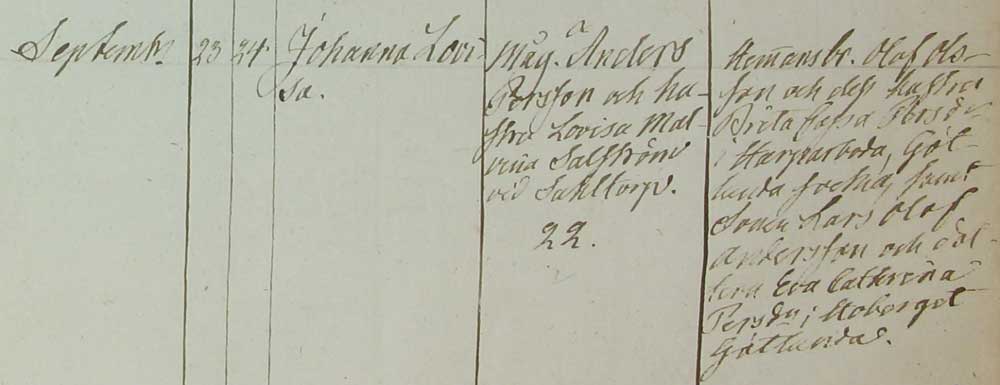 Septembr. 23 24. Johanna Lovi-
sa.
Måg. Anders
Persson och hu-
stru Lovisa Mal-
vina Salström
vid Sahltorp.
22.
Hemansbr. Olof Ols-
son och dess hustru
Brita Cajsa Persdr
i Harparboda, Göt-
lunda sockn, samt
Sonen Lars Olof
Andersson och dot-
tern Eva Cathrina
Persdr i Stoberget
Götlunda.